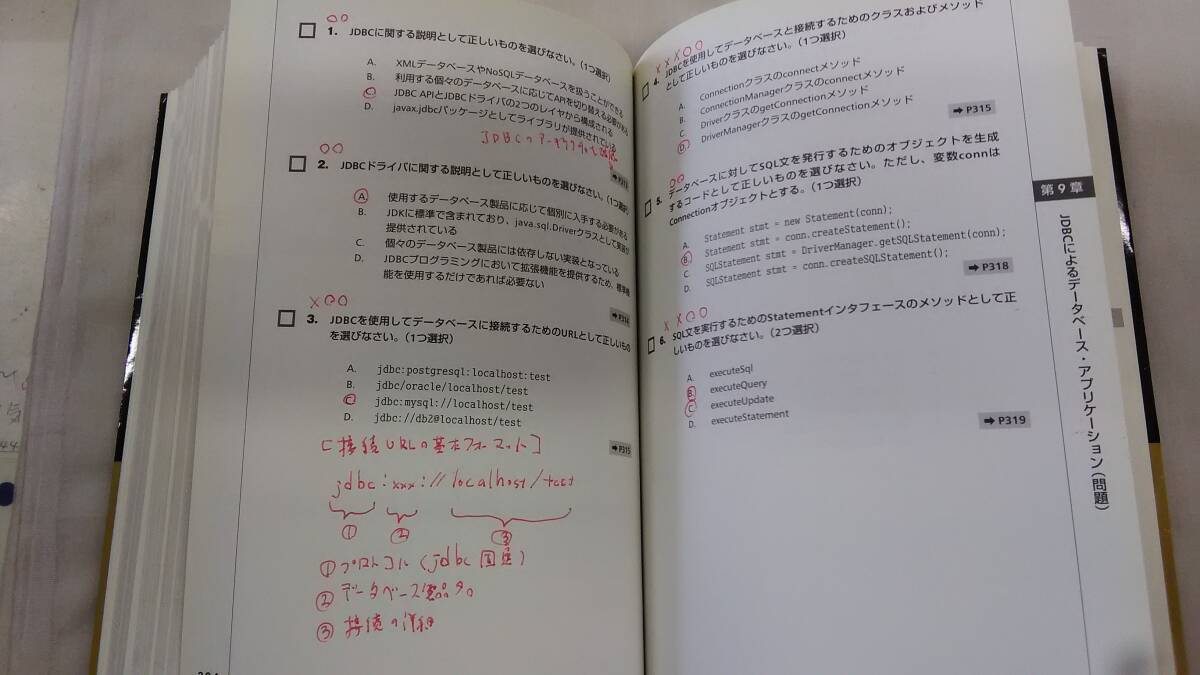 ○○
1. JDBCに関する説明として正しいものを選びなさい。(1つ選択)
A. XMLデータベースやNoSQLデータベースを扱うことができる
B. 利用する個々のデータベースに応じてAPIを切り替える必要がある
C. JDBC APIとJDBCドライバの2つのレイヤから構成される
D. javax.jdbcパッケージとしてライブラリが提供されている
JDBCのアーキテクチャを
○○
2. JDBCドライバに関する説明として正しいものを選びなさい。(1つ選択)
A. 使用するデータベース製品に応じて個別に入手する必要がある
B. JDKに標準で含まれており、java.sql.Driverクラスとして実装が
提供されている
C. 個々のデータベース製品には依存しない実装となっている
D. JDBCプログラミングにおいて拡張機能を提供するため、標準機
能を使用するだけであれば必要ない
➡P314
×○○
3. JDBCを使用してデータベースに接続するためのURLとして正しいもの
を選びなさい。(1つ選択)
A. jdbc:postgresql:localhost:test
B. jdbc/oracle/localhost/test
C. jdbc:mysql://localhost/test
D. jdbc://db2@localhost/test
➡P315
[接続URLの基本フォーマット]
jdbc:xxx://localhost/test
① ② ③
①プロトコル(jdbc固定)
②データベース製品名
③接続の詳細
×××○○
4. JDBCを使用してデータベースと接続するためのクラスおよびメソッド
として正しいものを選びなさい。(1つ選択)
A. Connectionクラスのconnectメソッド
B. ConnectionManagerクラスのconnectメソッド
C. DriverクラスのgetConnectionメソッド
D. DriverManagerクラスのgetConnectionメソッド
➡P315
○○
5. データベースに対してSQL文を発行するためのオブジェクトを生成
するコードとして正しいものを選びなさい。ただし、変数connは
Connectionオブジェクトとする。(1つ選択)
A. Statement stmt = new Statement(conn);
B. Statement stmt = conn.createStatement();
C. SQLStatement stmt = DriverManager.getSQLStatement(conn);
D. SQLStatement stmt = conn.createSQLStatement();
➡P318
××○○
6. SQL文を実行するためのStatementインタフェースのメソッドとして正
しいものを選びなさい。(2つ選択)
A. executeSql
B. executeQuery
C. executeUpdate
D. executeStatement
➡P319
第9章
JDBCによるデータベース・アプリケーション(問題)